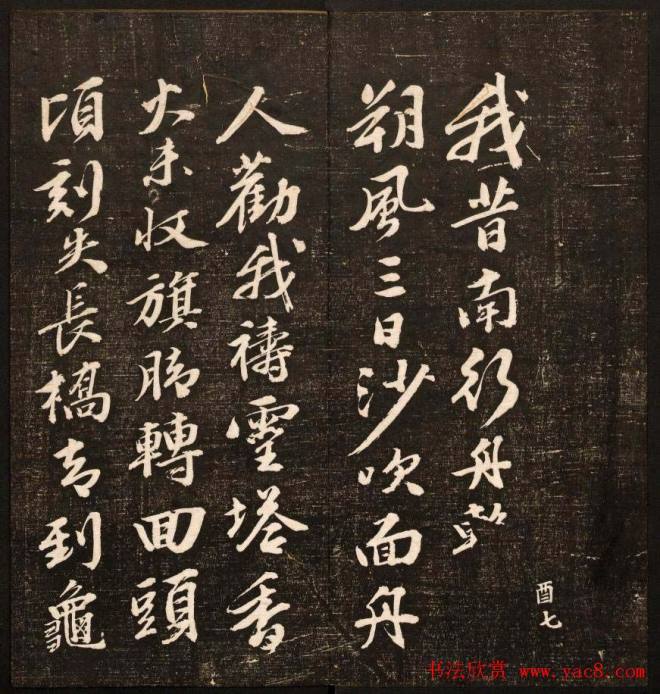 我昔南行舟
朔風三日沙吹面舟
人勸我禱靈塔香
火未收旗脚轉回頭
頃刻失長橋到龜
酉七
书法欣赏 www.yac8.com